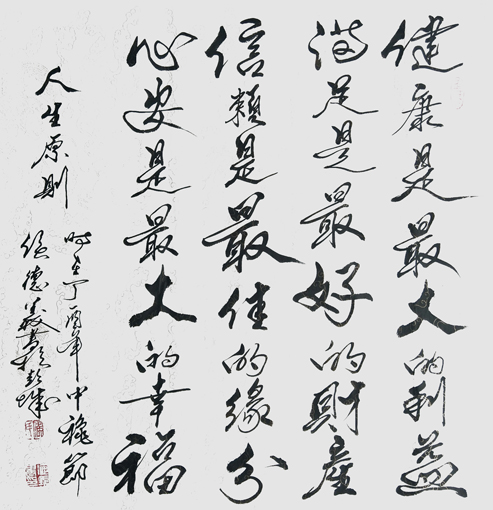 健康是最大的利益
满足是最好的財產
信賴是最佳的緣分
心安是最大的幸福
人生原則
时在丁酉年中穐節
德義書於彭城